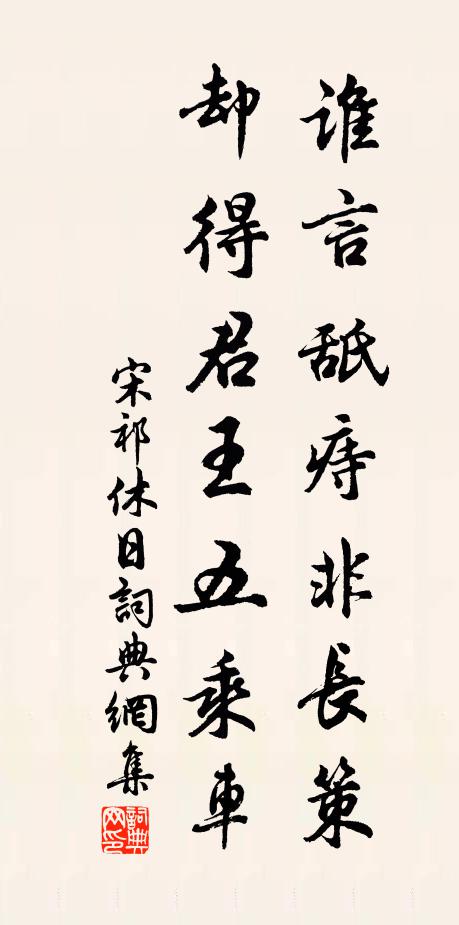 誰言舐痔非長策
却得君王五乘車
宋祁休日詞典網集
詞典網印